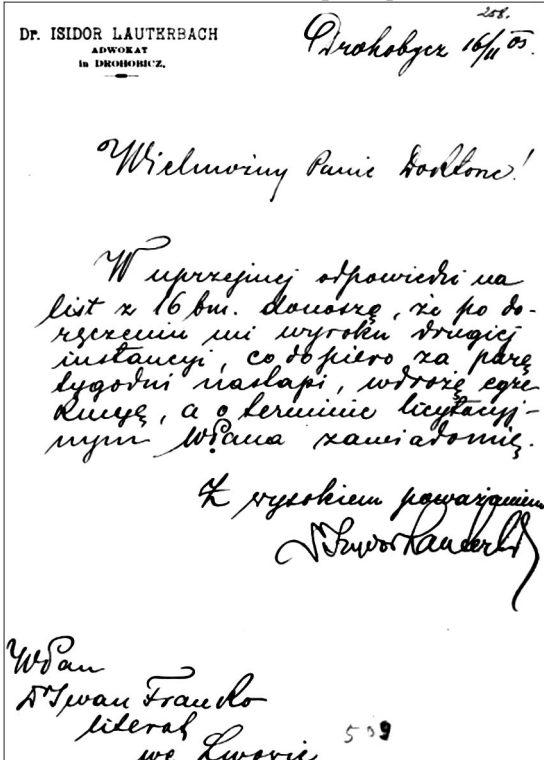 258.
Dr. ISIDOR LAUTERBACH
ADWOKAT
in DROHOBICZ.
Drohobycz 16/II 05.
Wielmożny Panie Doktorze!
W uprzejmej odpowiedzi na
list z 16 bm. donoszę, że po do-
ręczeniu mi wyroku drugiej
instancyi, co dopiero za parę
tygodni nastąpi, wdrożę egze
kucyę, a o terminie licytacyj-
nym WPana zawiadomię.
Z wysokiem poważaniem
Dr Izydor Lauterbach
WPan
Dr Iwan Franko
literat
we Lwowie
509